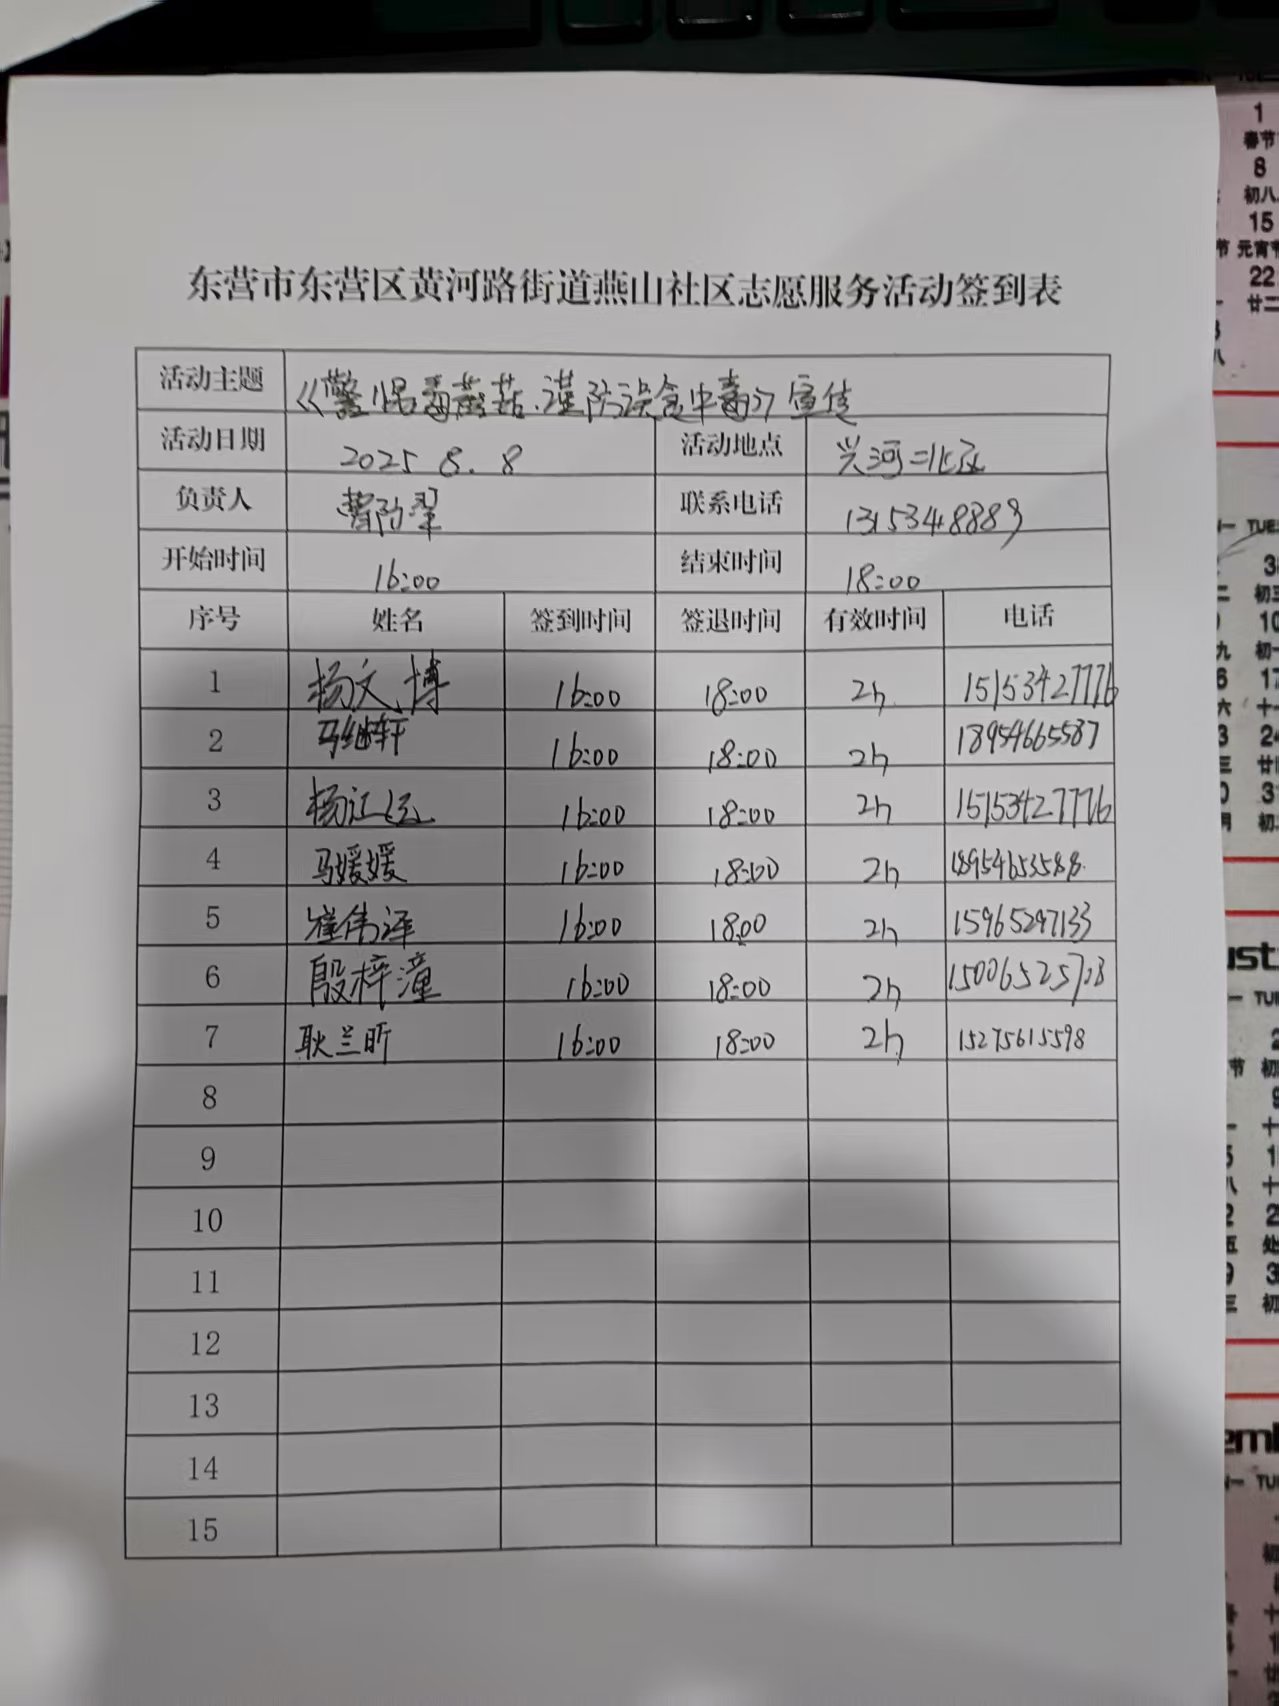 东营市东营区黄河路街道燕山社区志愿服务活动签到表
活动主题 《警惕毒蘑菇、谨防误食中毒》宣传
活动日期 2025 8. 8 活动地点 兴河二北区
负责人 联系电话 13153418889
开始时间 16:00 结束时间 18:00
序号 姓名 签到时间 签退时间 有效时间 电话
1 杨文博 16:00 18:00 2h 15153427776
2 马继轩 16:00 18:00 2h 18954665587
3 杨江 16:00 18:00 2h 15153427776
4 马媛媛 16:00 18:00 2h 18954653588
5 崔伟泽 16:00 18:00 2h 15965247133
6 殷梓潼 16:00 18:00 2h
7 耿兰昕 16:00 18:00 2h 15275615598
8
9
10
11
12
13
14
15
1
春节
8
初八
15
元宵节
22
廿二